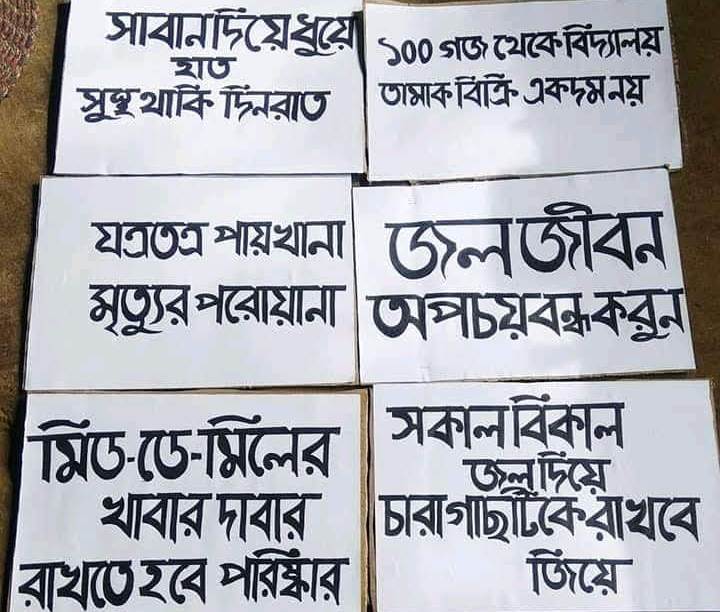 সাবান দিয়ে ধুয়ে
হাত
সুস্থ থাকি দিনরাত
১০০ গজ থেকে বিদ্যালয়
তামাক বিক্রি একদম নয়
যত্রতত্র পায়খানা
মৃত্যুর পরোয়ানা
জল জীবন
অপচয় বন্ধ করুন
মিড-ডে-মিলের
খাবার দাবার
রাখতে হবে পরিষ্কার
সকাল বিকাল
জল দিয়ে
চারা গাছটিকে রাখবে
জিয়ে